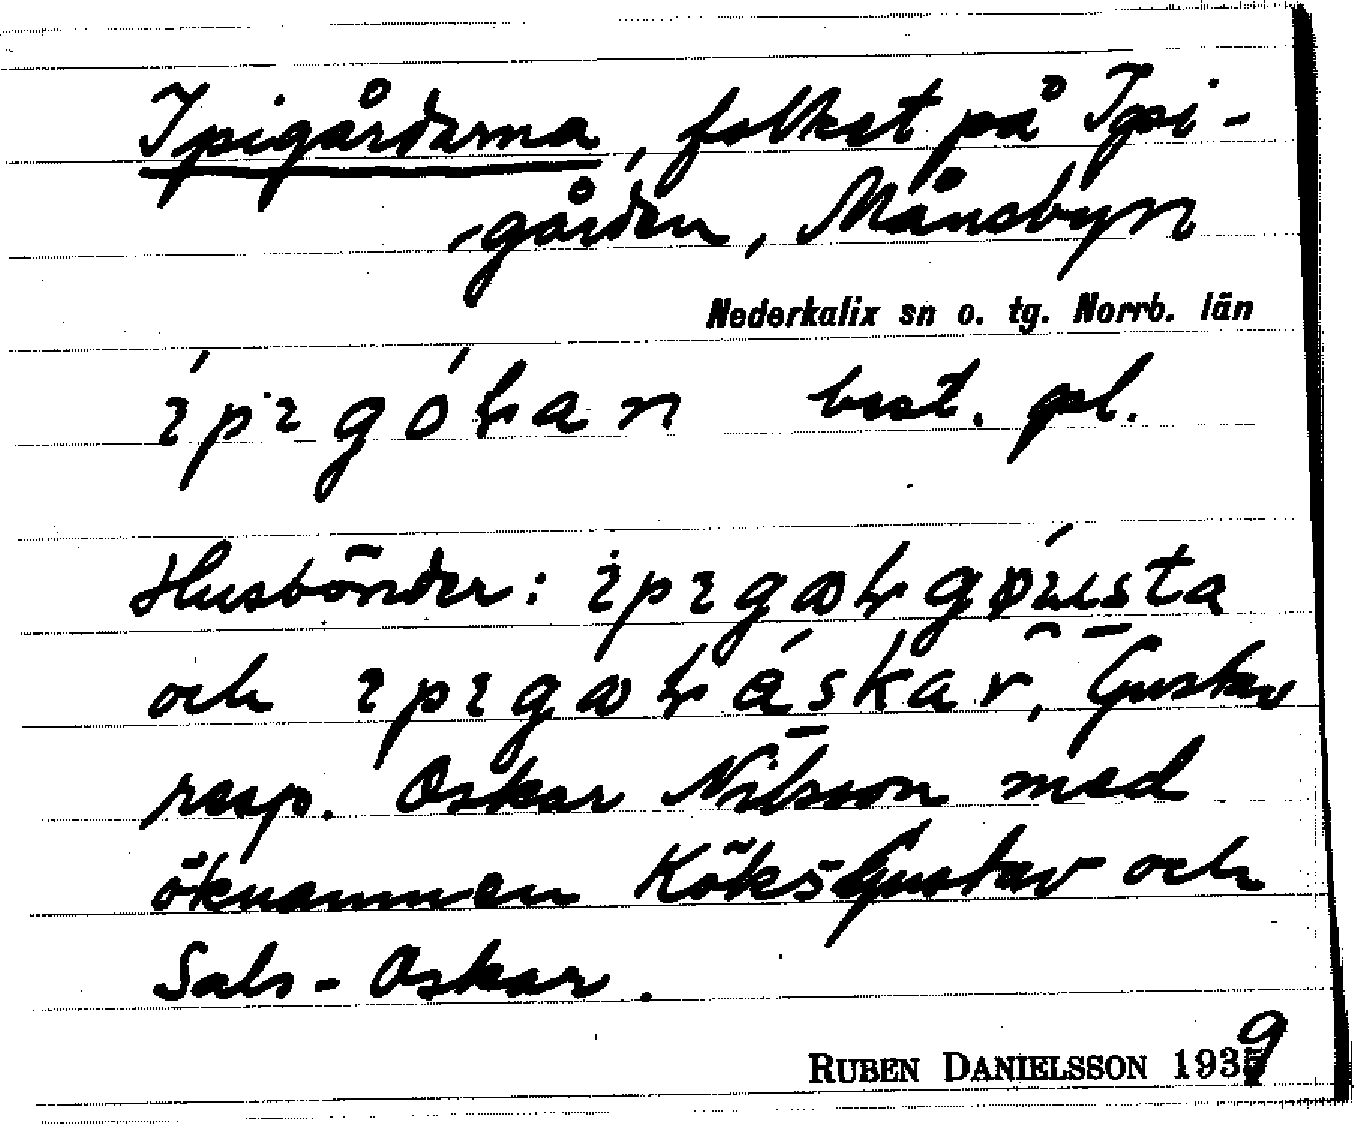 Ipigårdarna, folket på Ipi-
-gården, Månsbyn
Nederkalix sn o. tg. Norrb. län
best. pl.
Husbönder:
och Gustav
resp. Oskar Nilsson med
öknamnen Köks-Gustav och
Sals-Oskar.
RUBEN DANIELSSON 1939